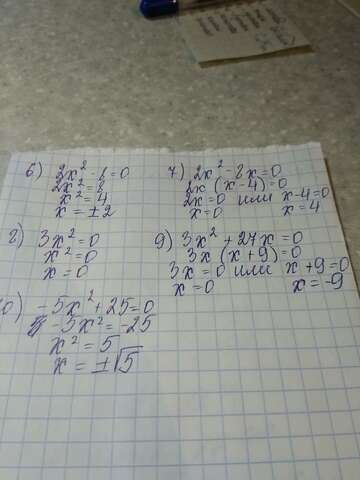 6) 2x² - 8 = 0
2x² = 8
x² = 4
x = ±2
7) 2x² - 8x = 0
2x (x-4) = 0
2x = 0 или x-4=0
x = 0 x = 4
8) 3x² = 0
x² = 0
x = 0
9) 3x² + 27x = 0
3x (x+9) = 0
3x = 0 или x+9=0
x = 0 x = -9
10) -5x² + 25 = 0
-5x² = -25
x² = 5
x = ±√5